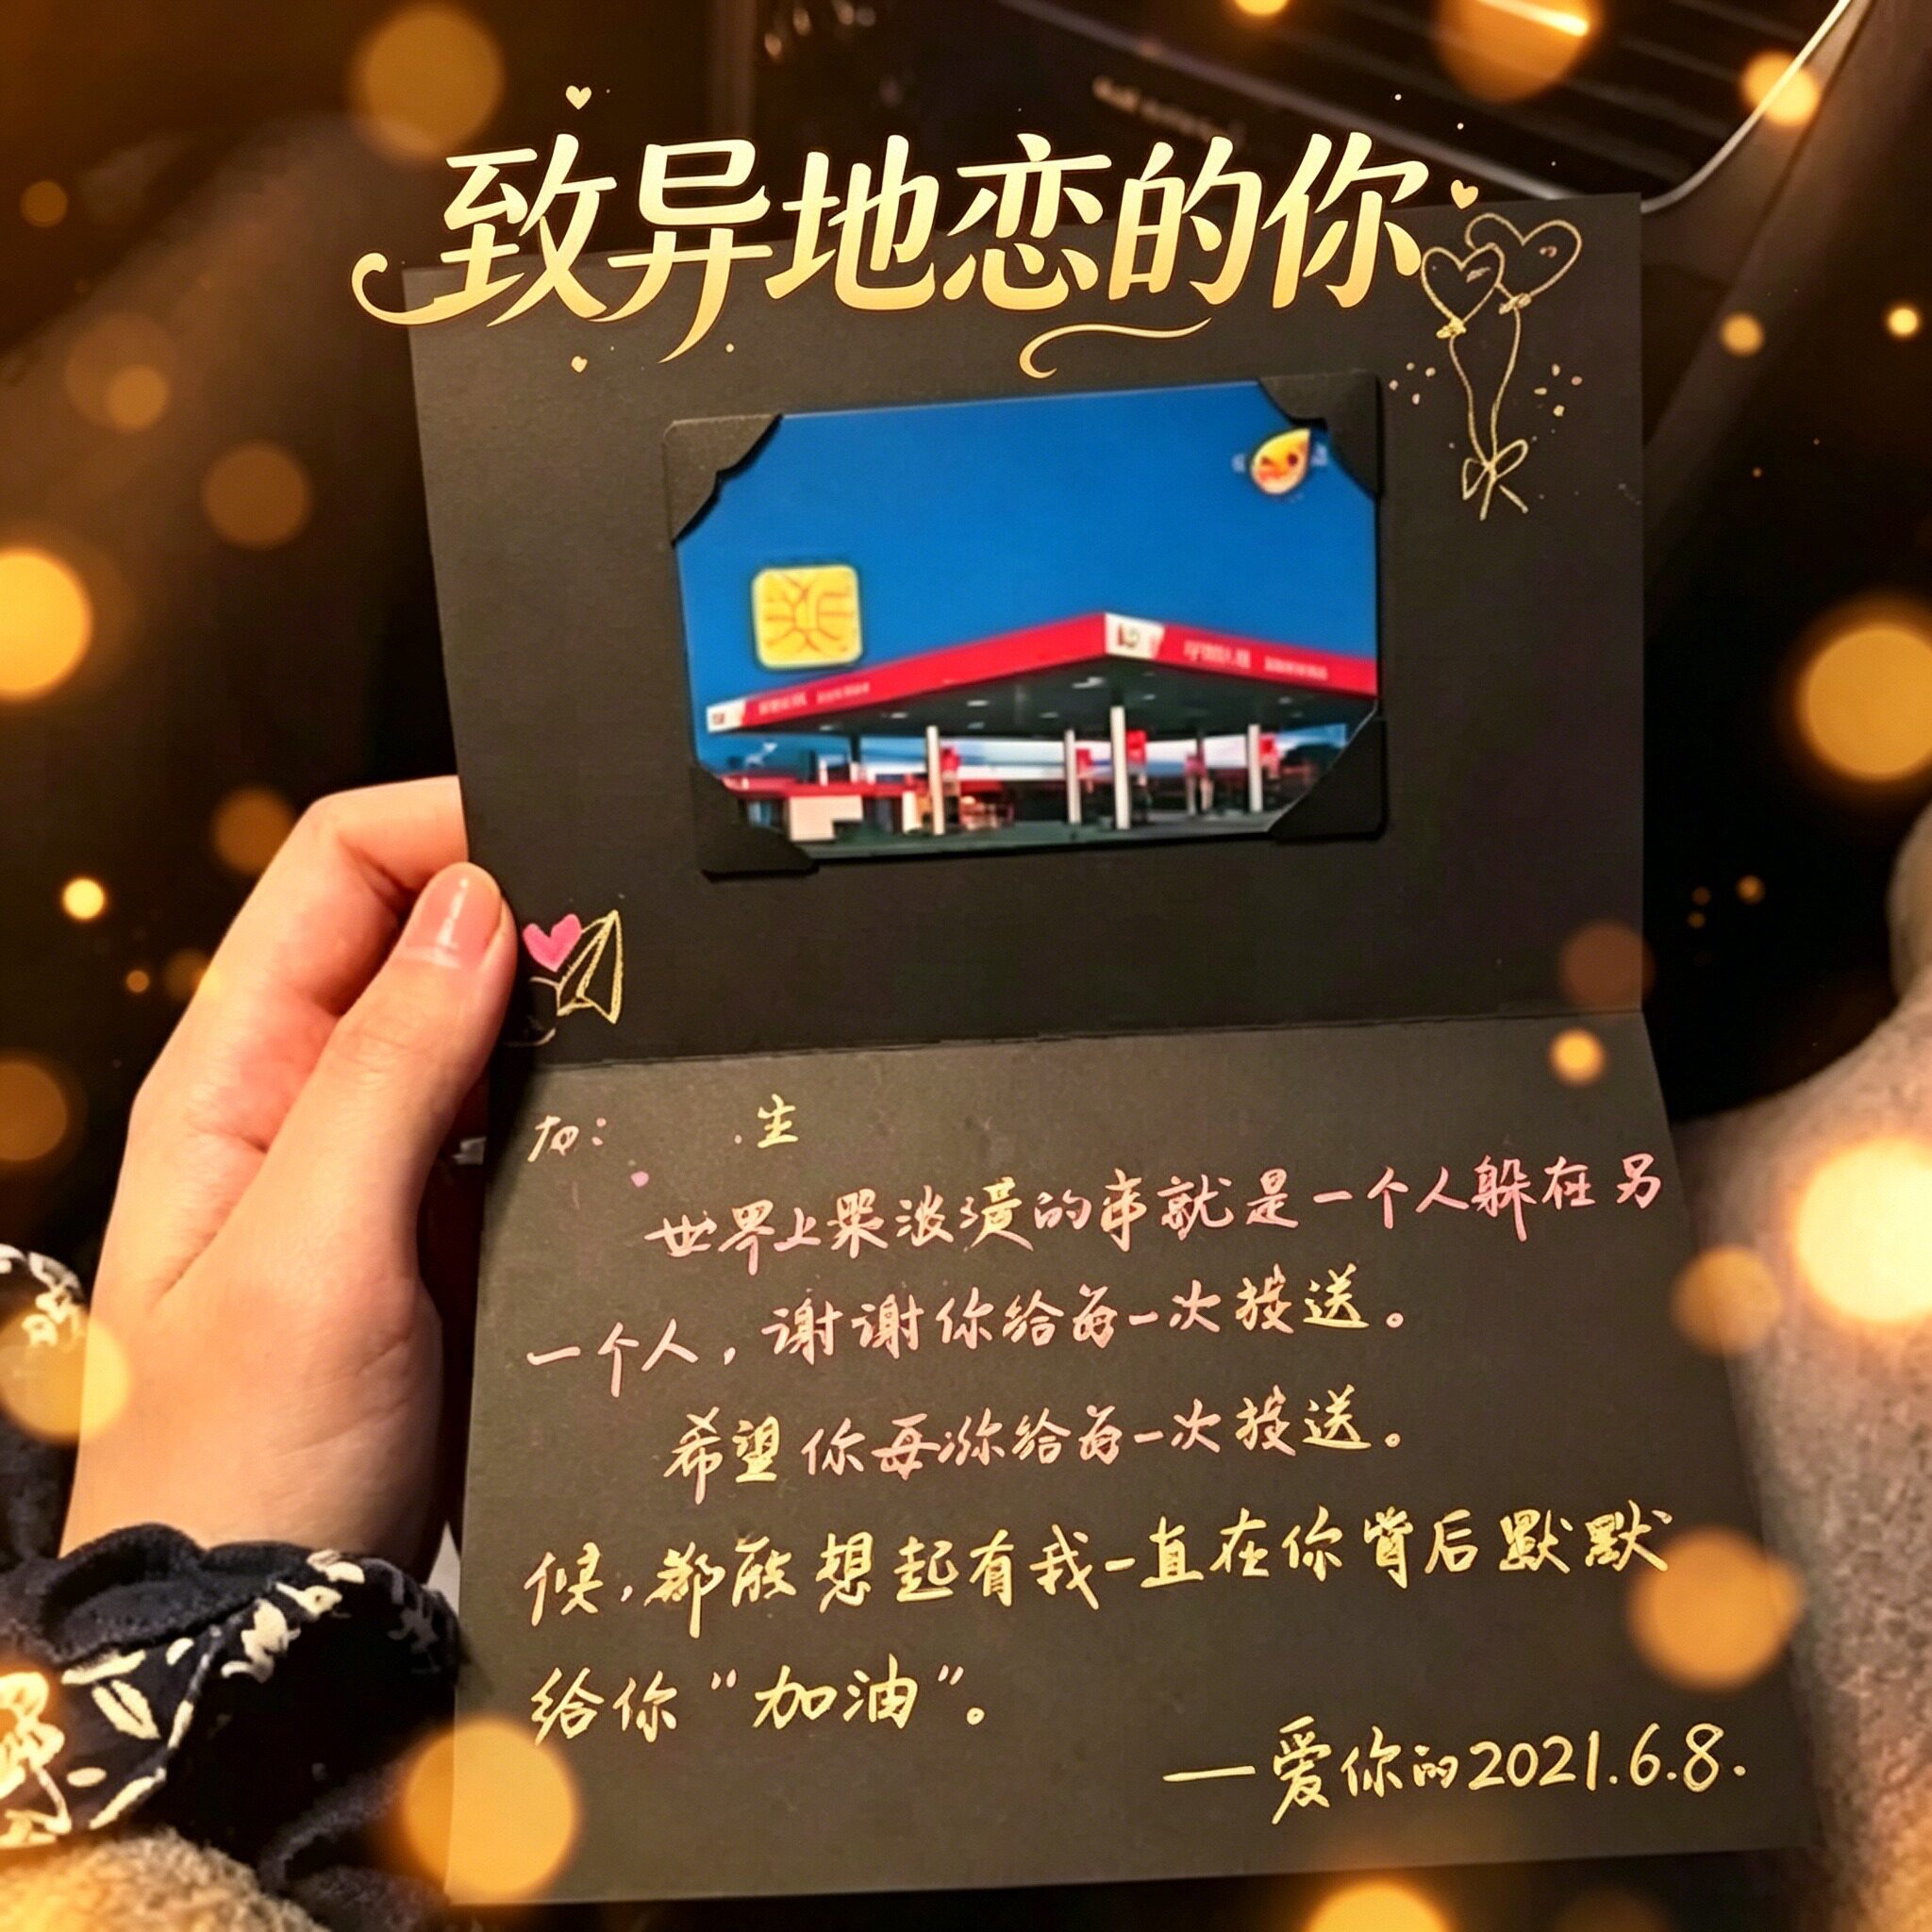 致异地恋的你
To: 生
世界上最浪漫的事就是一个人躲在另
一个人，谢谢你给每一次接送。
希望你每次你给每一次接送。
候，都能想起有我一直在你背后默默
给你“加油”。
—爱你的2021.6.8.